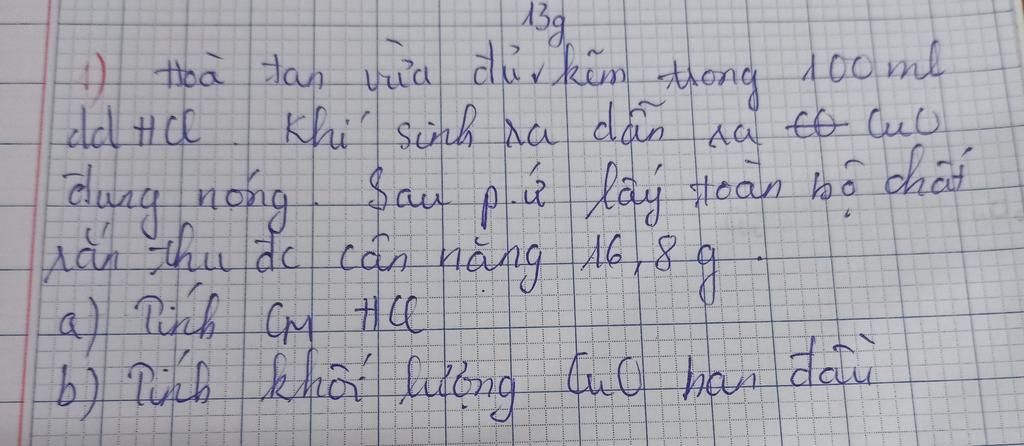 13g
1) Hoà tan vừa đủ v kẽm trong 100ml
dd HCl. Khí sinh ra dẫn ra CuO
đựng nóng. Sau p.ứ lấy toàn bộ chất
rắn thu đc cân nặng 16,8 g.
a) Tính CM HCl
b) Tính khối lượng CuO ban đầu